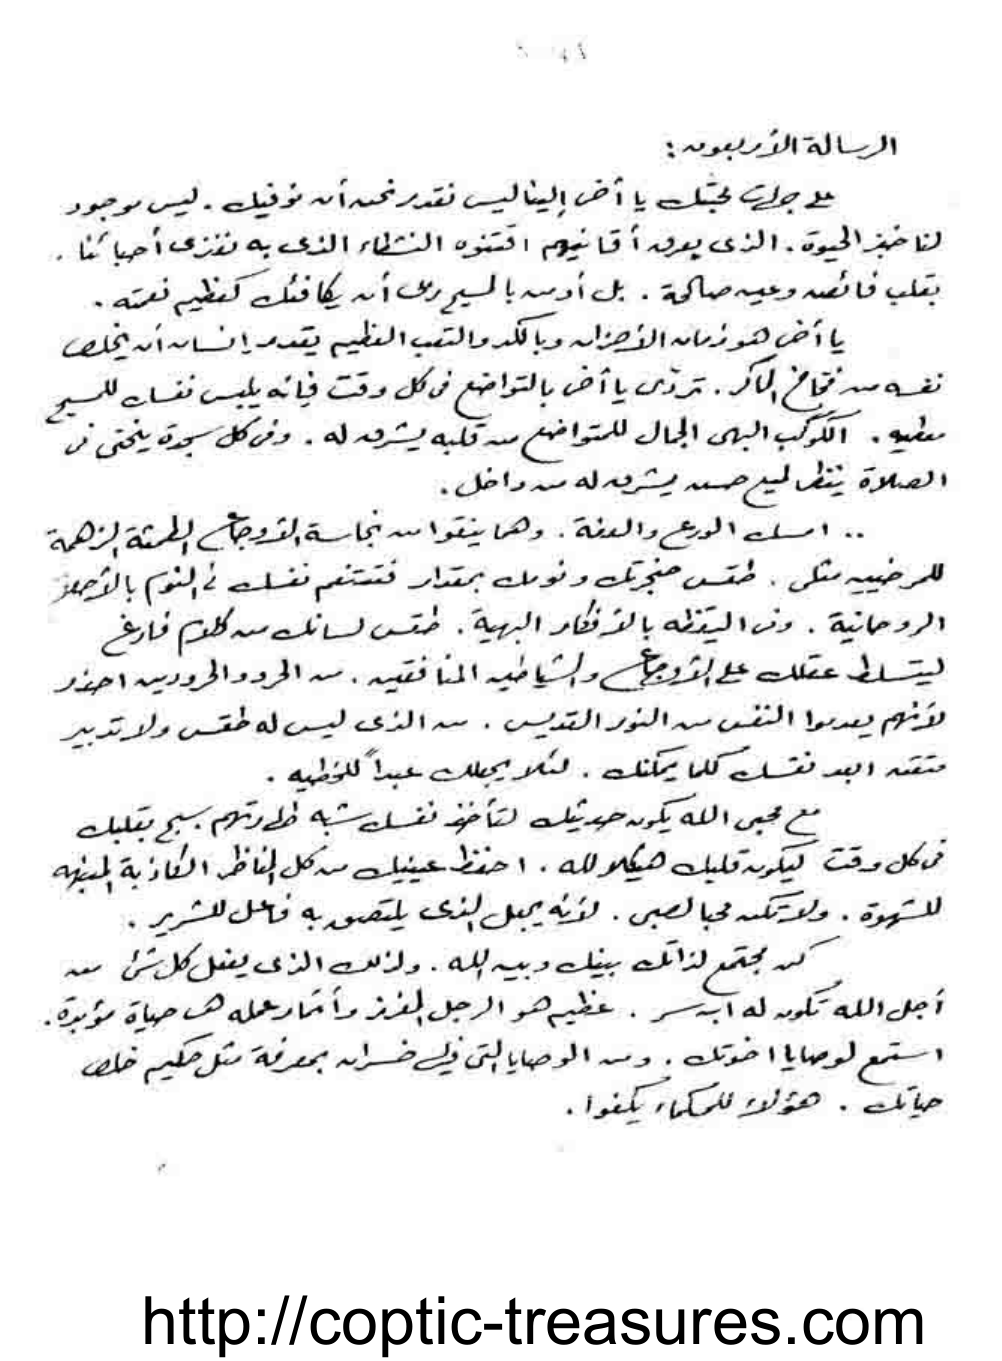 الرسالة الأربعون :
على جولان محبتك يا أخى إلينا ليس نقدر نحن أن نوفيك . ليس موجود
لنا خبز الحيوة . الذى يعرف أقانيهم اقتنوه النشطاء الذى به نغزى أحبائنا .
بقلب فائض وعين صالحة . بل أومن بالمسيح ربى أن يكافئك كعظيم نعمته .
يا أخى هو زمان الأحزان وبالكد والتعب العظيم يقدر إنسان أن يخلص
نفسه من فخاخ الماكر . تردّى يا أخى بالتواضع فى كل وقت فإنه يلبس نفسك للمسيح
معطيه . الكوكب البهى الجمال للمتواضع من قلبه يشرق له . وفى كل سجدة ينحنى فى
الصلاة ينظر لميع حسن يشرق له من داخل .
.. امسك الورع والعفة . وهما ينقوا من نجاسة الأوجاع الطمثة الزهمة
للمرضيين مثلى . طقس حنجرتك ونومك بمقدار فتتنعم نفسك فى النوم بالأحلام
الروحانية . وفى اليقظه بالأفكار البهية . طقس لسانك من كلام فارغ
ليتسلط عقلك على الأوجاع والشياطين المنافقين . من الحرد والحرودين احذر
لأنهم يعدموا النفس من النور القديس . من الذى ليس له طقس ولا تدبير
متقن ابعد نفسك كلما يمكنك . لئلا يجعلك عبداً للخطيه .
مع محبى الله يكون حديثك لتأخذ نفسك شبه طهارتهم . سبح بقلبك
فى كل وقت ليكون قلبك هيكلا لله . احفظ عينيك من كل المناظر الكاذبة المنبهه
للشهوة . ولا تكن محبا لصبى . لأنه يجعل الذى يلتصق به فاعل للشرير .
كن مجتمع لذاتك بينك وبين الله . ولذلك الذى يفعل كل شئ من
أجل الله تكون له ابن سر . عظيم هو الرجل المفرز وأثمار عمله هى حياة مؤبدة .
استمع لوصايا اخوتك . ومن الوصايا التى فيها خسران بمعرفة مثل حكيم خلص
حياتك . هؤلاء للحكماء يكفوا .
http://coptic-treasures.com